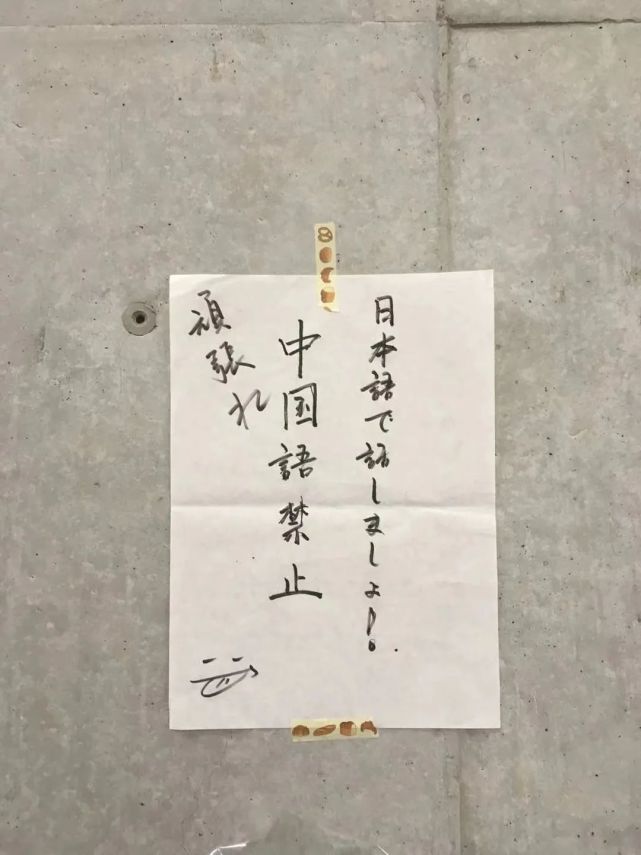 日本語で話しましょ!
中国語禁止
頑張れ